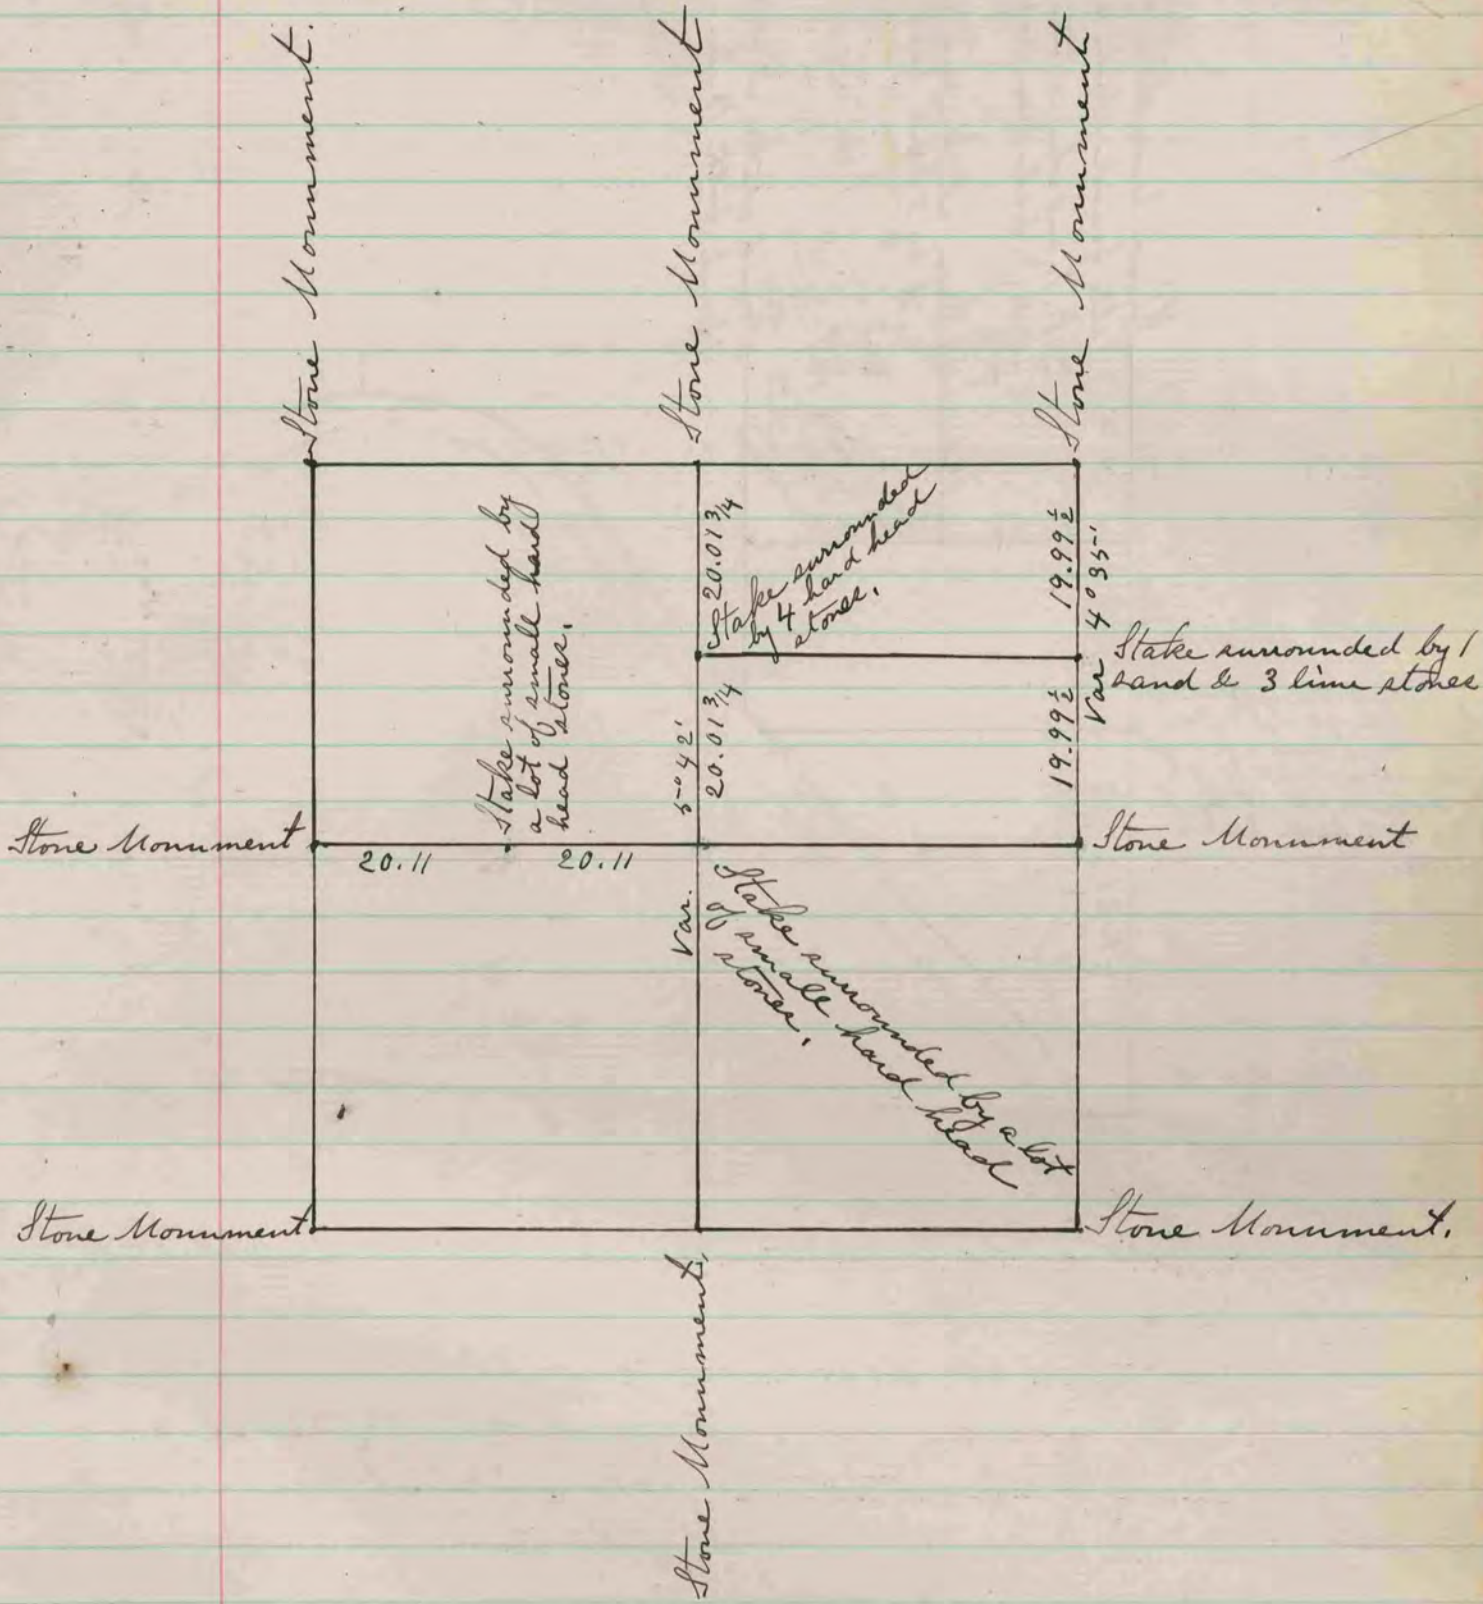 Stone Monument.
Stone Monument
Stone Monument
Stake surrounded by
a lot of small hard
head stones.
20.01 3/4
Stake surrounded
by 4 hard head
stones.
19.99 1/2
Var 4° 35'
Stake surrounded by 1
sand & 3 lime stones
20.01 3/4
19.99 1/2
Var. 5° 42'
Stone Monument
20.11
20.11
Stone Monument
Stake surrounded by a lot
of small hard head
stones.
Stone Monument
Stone Monument.
Stone Monument.